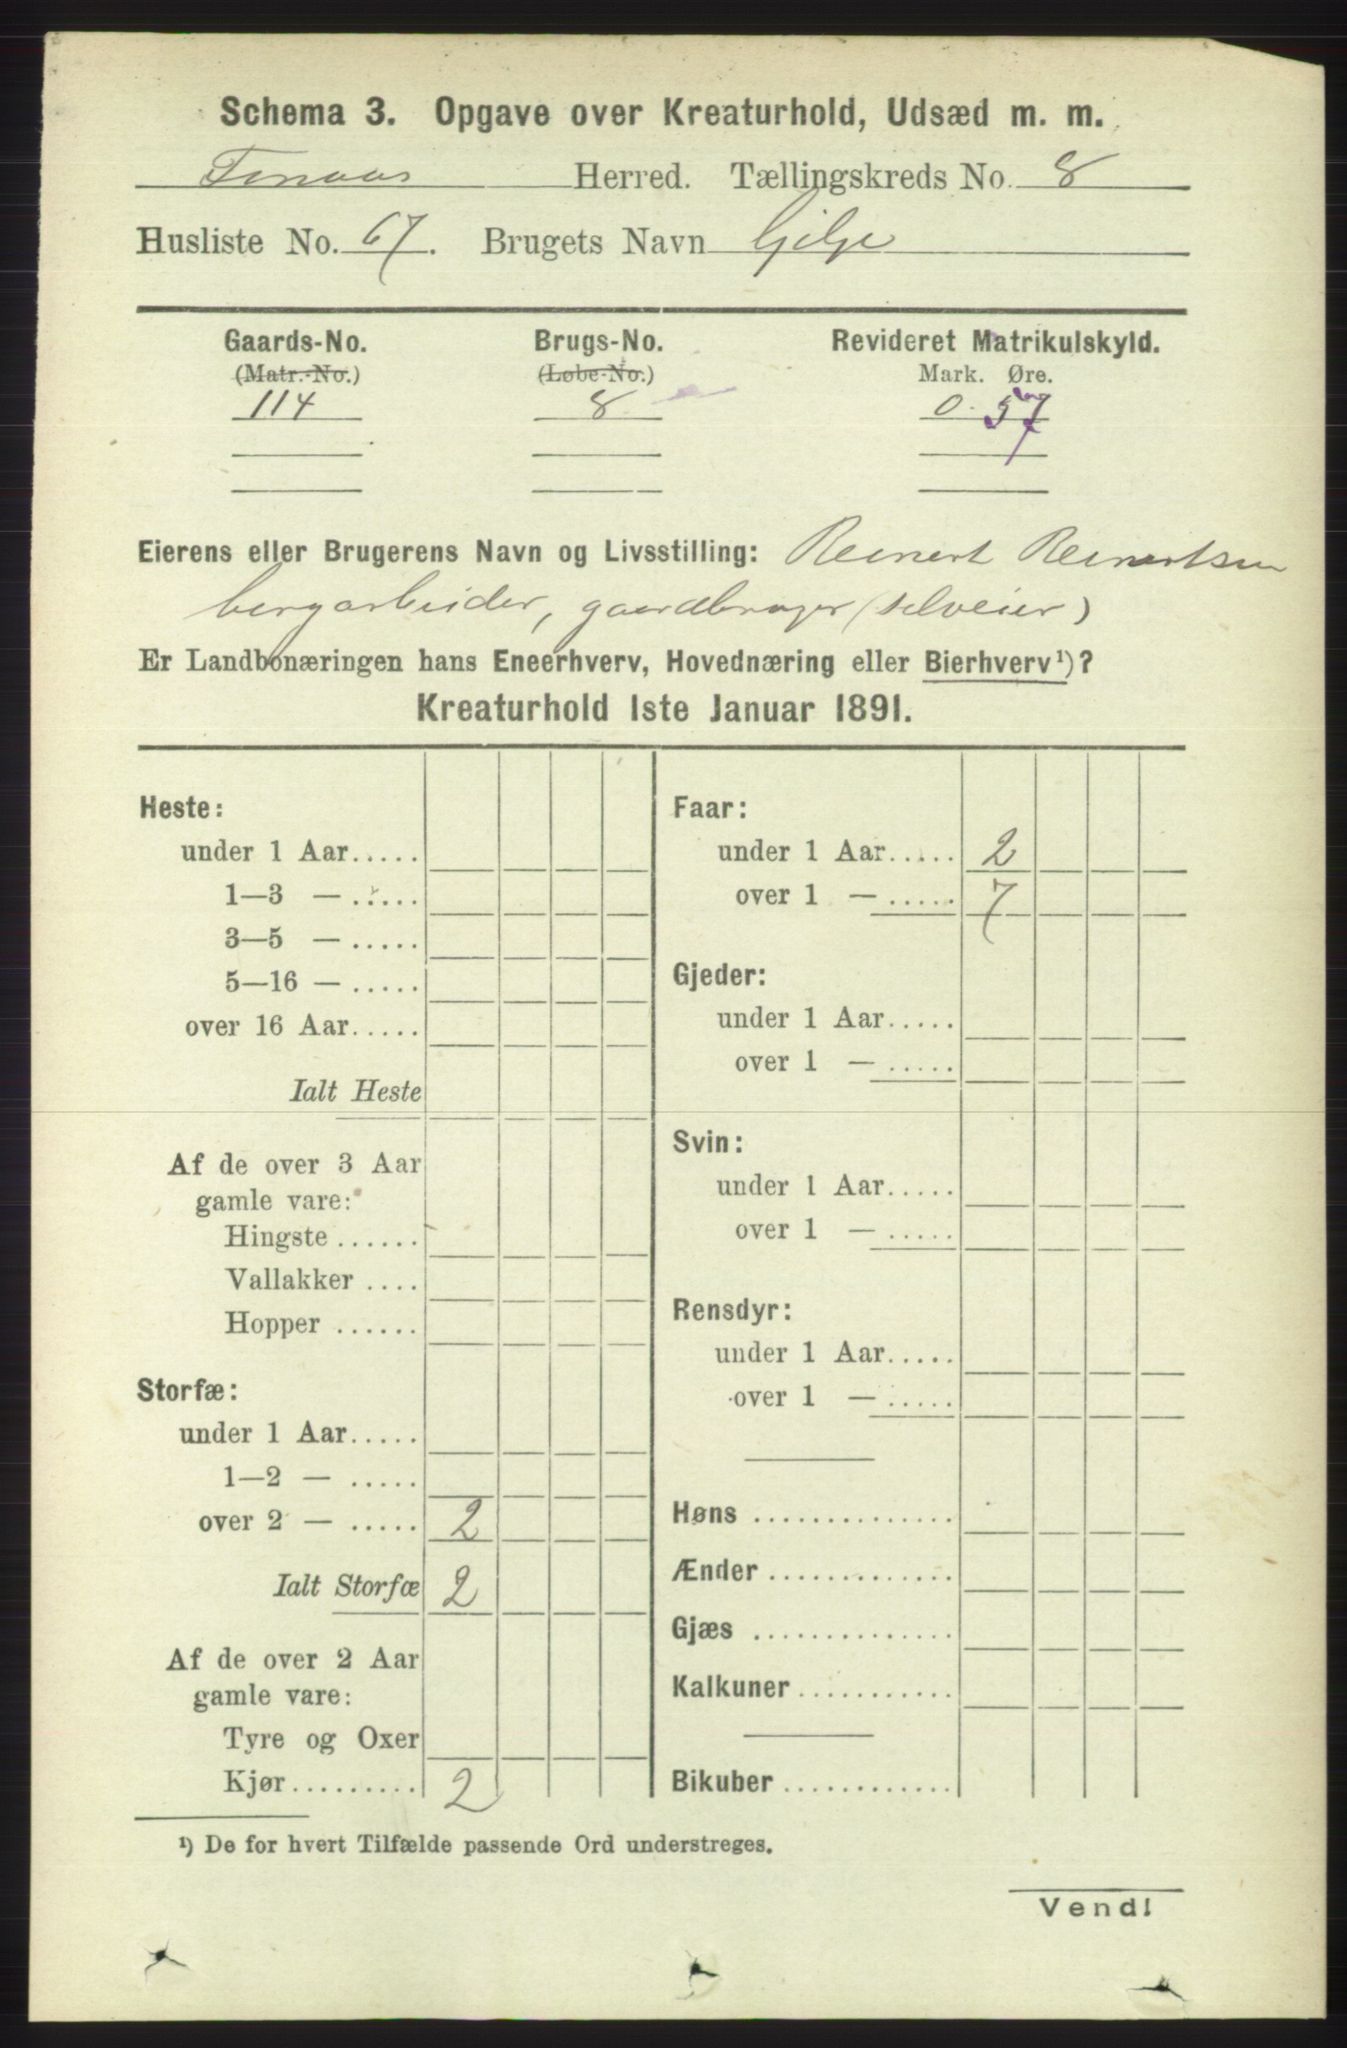 Schema 3. Opgave over Kreaturhold, Udsæd m. m.
Finaas Herred. Tællingskreds No. 8
Husliste No. 67. Brugets Navn Gilje
Gaards-No. Brugs-No. Revideret Matrikulskyld.
(Matr.-No.) (Løbe-No.) Mark. Øre.
114 8 0. 57
Eierens eller Brugerens Navn og Livsstilling: Reinert Reinertsen
bergarbeider, gaardbruger (selveier)
Er Landbonæringen hans Eneerhverv, Hovednæring eller Bierhverv¹)?
Kreaturhold 1ste Januar 1891.
Heste:
under 1 Aar.....
1—3 — .....
3—5 — .....
5—16 — .....
over 16 Aar.....
Ialt Heste
Af de over 3 Aar
gamle vare:
Hingste ......
Vallakker ....
Hopper ......
Storfæ:
under 1 Aar.....
1—2 — .....
over 2 — ..... 2
Ialt Storfæ 2
Af de over 2 Aar
gamle vare:
Tyre og Oxer
Kjør......... 2
Faar:
under 1 Aar..... 2
over 1 — ..... 7
Gjeder:
under 1 Aar.....
over 1 — .....
Svin:
under 1 Aar.....
over 1 — .....
Rensdyr:
under 1 Aar.....
over 1 — .....
Høns ..............
Ænder .............
Gjæs ..............
Kalkuner...........
Bikuber ............
¹) De for hvert Tilfælde passende Ord understreges.
Vend!